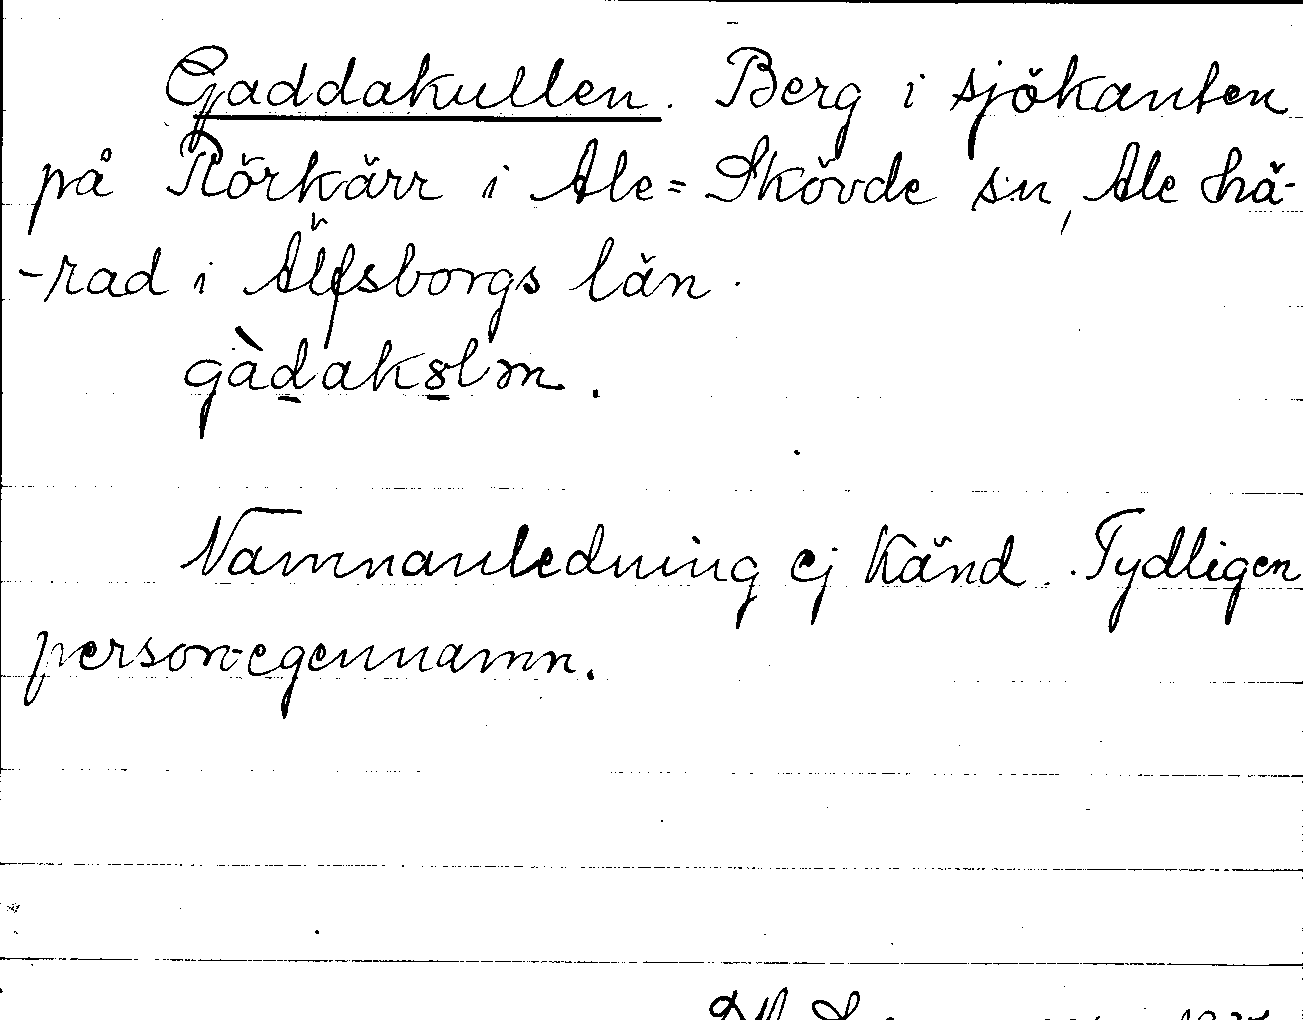 Gaddakullen. Berg i sjökanten
på Rörkärr i Ale=Skövde sn, Ale hä-
-rad i Älfsborgs län.
gàdakslm.
Namnanledning ej känd. Tydligen
person-egennamn.